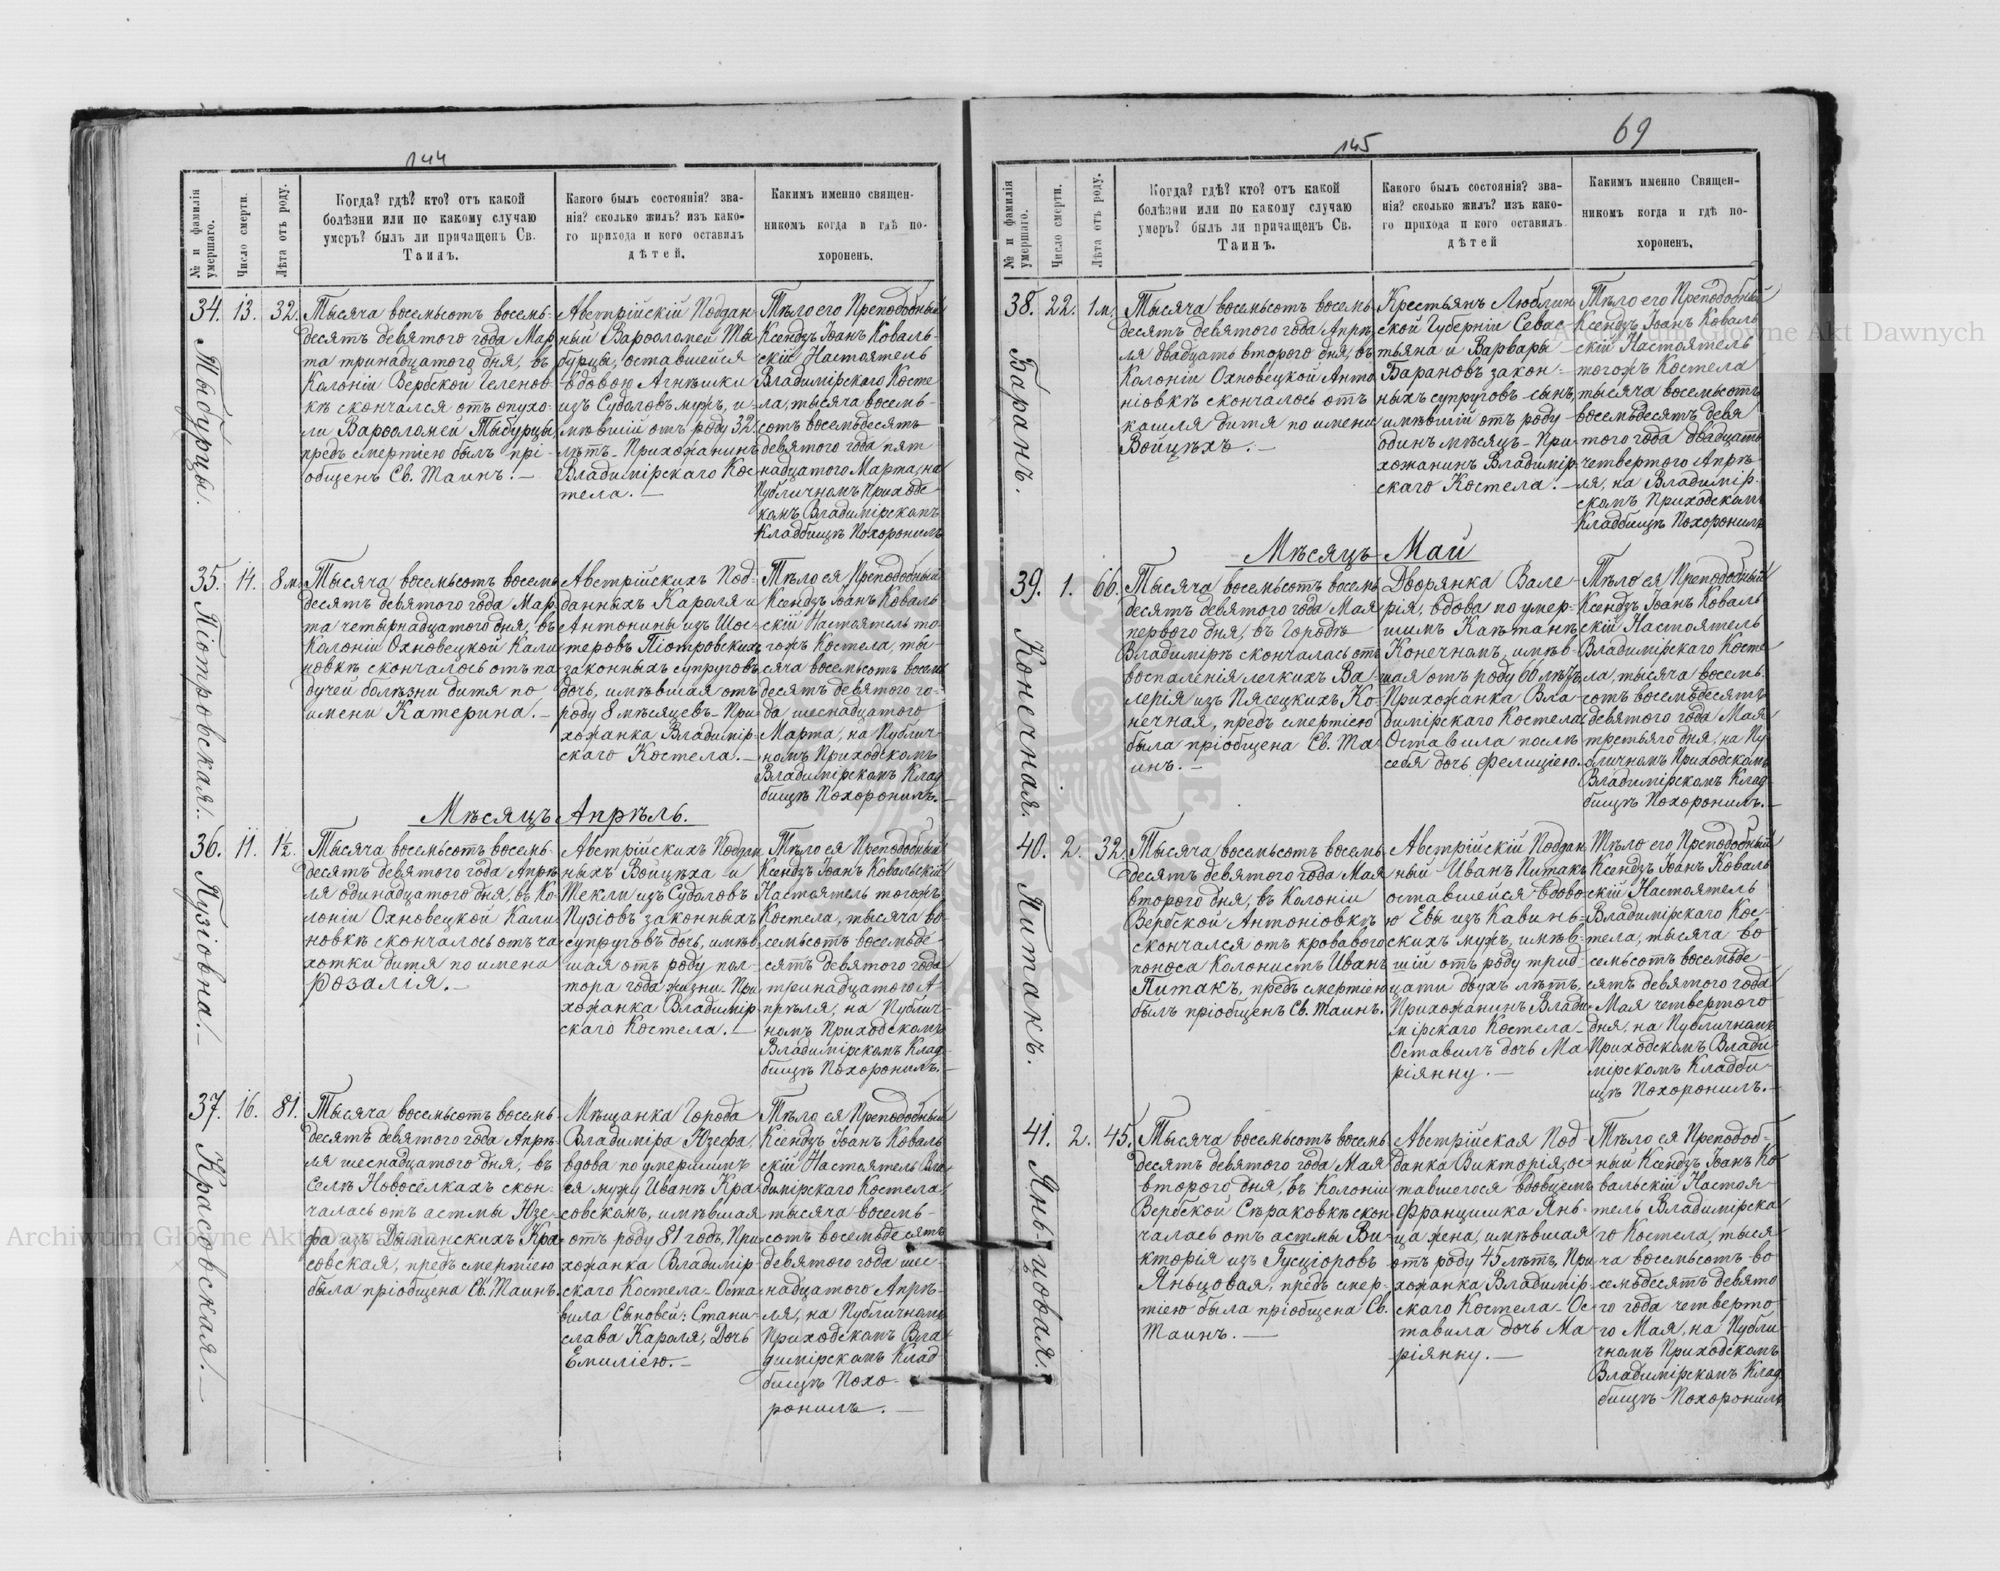 144
№ и фамилія умершаго.
Число смерти.
Лѣта отъ роду.
Когда? гдѣ? кто? отъ какой
болѣзни или по какому случаю
умеръ? былъ ли причащенъ Св.
Таинъ.
Какого былъ состоянія? зва-
нія? сколько жилъ? изъ како-
го прихода и кого оставилъ
дѣтей.
Какимъ именно священ-
никомъ когда и гдѣ по-
хороненъ.
34. Тыбурцы.
13.
32.
Тысяча восемьсотъ восемь-
десятъ девятого года Мар
та тринадцатого дня, въ
Колоніи Вербской Селенов-
кѣ скончался отъ опухо-
ли Варѳоломей Тыбурцы,
предъ смертію былъ прі-
общенъ Св. Таинъ. —
Австрійскій Поддан
ный Варѳоломей Ты
бурцы, оставшейся
вдовою Агнѣшки
изъ Судоловъ мужъ, и-
мѣвшій отъ роду 32
лѣтъ - Прихожанинъ
Владимірскаго Кос-
тела. —
Тѣло его Преподобный
Ксендзъ Іоанъ Коваль-
скій Настоятель
Владимірскаго Косте
ла, тысяча восемь-
сотъ восемьдесятъ
девятого года пят
надцатого Марта, на
Публичномъ Приходс
комъ Владимірскомъ
Кладбищѣ Похоронилъ
35. Піотровская.
14.
8 м.
Тысяча восемьсотъ восемь
десятъ девятого года Мар
та четырнадцатого дня, въ
Колоніи Охновецкой Кали
новкѣ скончалось отъ па
дучей болѣзни дитя по
имени Катерина. —
Австрійскихъ Под-
данныхъ Кароля и
Антонины изъ Шос
теровъ Піотровскихъ
законныхъ супруговъ
дочь, имѣвшая отъ
роду 8 мѣсяцевъ - При
хожанка Владимір-
скаго Костела. —
Тѣло ея Преподобный
Ксендзъ Іоанъ Коваль
скій Настоятель то-
гожъ Костела, ты-
сяча восемьсотъ восемь
десятъ девятого го-
да шеснадцатого
Марта, на Публич-
номъ Приходскомъ
Владимірскомъ Клад
бищѣ Похоронилъ. —
Мѣсяцъ Апрѣль.
36. Пузіовна. —
11.
1½.
Тысяча восемьсотъ восемь-
десятъ девятого года Апрѣ
ля одинадцатого дня, въ Ко-
лоніи Охновецкой Кали-
новкѣ скончалось отъ ча
хотки дитя по имени
Розалія. —
Австрійскихъ Поддан
ныхъ Войцѣха и
Текли изъ Судоловъ
Пузіовъ законныхъ
супруговъ дочь, имѣв
шая отъ роду пол-
тора года жизни - При
хожанка Владимір
скаго Костела. —
Тѣло ея Преподобный
Ксендзъ Іоанъ Ковальскій
Настоятель тогожъ
Костела, тысяча во
семьсотъ восемьде-
сятъ девятого года
тринадцатого А-
прѣля, на Публич-
номъ Приходскомъ
Владимірскомъ Клад-
бищѣ Похоронилъ. —
37. Красовская. —
16.
81.
Тысяча восемьсотъ восемь
десятъ девятого года Апрѣ-
ля шеснадцатого дня, въ
Селѣ Новосёлкахъ скон-
чалась отъ астмы Юзе-
фа изъ Дяманскихъ Кра-
совская, предъ смертію
была пріобщена Св. Таинъ.
Мѣщанка Города
Владиміра Юзефа,
вдова по умершимъ
ея мужу Иванѣ Кра-
совскомъ, имѣвшая
отъ роду 81 годъ, При
хожанка Владимір
скаго Костела - Оста-
вила Сыновей: Стани-
слава Кароля, Дочь
Емилію. —
Тѣло ея Преподобный
Ксендзъ Іоанъ Коваль
скій Настоятель Вла-
димірскаго Костела,
тысяча восемь-
сотъ восемьдесятъ
девятого года шес-
надцатого Апрѣ-
ля, на Публичномъ
Приходскомъ Вла
димірскомъ Клад-
бищѣ Похо-
ронилъ. —
145
69
№ и фамилія умершаго.
Число смерти.
Лѣта отъ роду.
Когда? гдѣ? кто? отъ какой
болѣзни или по какому случаю
умеръ? былъ ли причащенъ Св.
Таинъ.
Какого былъ состоянія? зва-
нія? сколько жилъ? изъ како-
го прихода и кого оставилъ
дѣтей
Какимъ именно Священ-
никомъ когда и гдѣ по-
хороненъ.
38. Баранъ.
22.
1 м.
Тысяча восемьсотъ восемь
десятъ девятого года Апрѣ-
ля двадцать второго дня, въ
Колоніи Охновецкой Анто
ніовкѣ скончалось отъ
кашля дитя по имени
Войцѣхъ. —
Крестьянъ Люблин
ской Губерніи Севас-
тьяна и Варвары
Барановъ закон-
ныхъ супруговъ сынъ,
имѣвшій отъ роду
одинъ мѣсяцъ - При-
хожанинъ Владимір-
скаго Костела. —
Тѣло его Преподобный
Ксендзъ Іоанъ Коваль
скій Настоятель
тогожъ Костела
тысяча восемьсотъ
восемьдесятъ девя
того года двадцать
четвертого Апрѣ-
ля, на Владимір-
скомъ Приходскомъ
Кладбищѣ Похоронилъ
Мѣсяцъ Май
39. Конечная.
1.
66.
Тысяча восемьсотъ восемь
десятъ девятого года Мая
первого дня, въ Городѣ
Владимірѣ скончалась отъ
воспаленія легкихъ Ва-
лерія изъ Пясецкихъ Ко-
нечная, предъ смертію
была пріобщена Св. Та-
инъ. —
Дворянка Вале-
рія, вдова по умер-
шимъ Каетанѣ
Конечномъ, имѣв-
шая отъ роду 66 лѣтъ,
Прихожанка Вла-
димірскаго Костела
Оставила послѣ
себя дочь Фелицію.
Тѣло ея Преподобный
Ксендзъ Іоанъ Коваль
скій Настоятель
Владимірскаго Косте
ла, тысяча восемь-
сотъ восемьдесятъ
девятого года Мая
третьяго дня, на Пу
бличномъ Приходскомъ
Владимірскомъ Клад
бищѣ Похоронилъ. —
40. Питакъ.
2.
32.
Тысяча восемьсотъ восемь
десятъ девятого года Мая
второго дня, въ Колоніи
Вербской Антоніовкѣ
скончался отъ кровавого
поноса Колонистъ Иванъ
Питакъ, предъ смертію
былъ пріобщенъ Св. Таинъ.
Австрійскій Поддан
ный Иванъ Питакъ
оставшейся вдово-
ю Евы изъ Кавинь-
скихъ мужъ, имѣв-
шій отъ роду трид-
цати двухъ лѣтъ,
Прихожанинъ Влади-
мірскаго Костела -
Оставилъ дочь Ма-
ріянну. —
Тѣло его Преподобный
Ксендзъ Іоанъ Коваль
скій Настоятель
Владимірскаго Кос-
тела, тысяча во
семьсотъ восемьде-
сятъ девятого года
Мая четвертого
дня, на Публичномъ
Приходскомъ Влади-
мірскомъ Кладби-
щѣ Похоронилъ. —
41. Яньцовая. —
2.
45.
Тысяча восемьсотъ восемь
десятъ девятого года Мая
второго дня, въ Колоніи
Вербской Сѣраковкѣ скон
чалась отъ астмы Ви-
кторія изъ Гусціоровъ
Яньцовая, предъ смер-
тію была пріобщена Св.
Таинъ. —
Австрійская Под
данка Викторія, ос-
тавшегося вдовцемъ
Францишка Янь-
ца жена, имѣвшая
отъ роду 45 лѣтъ, При
хожанка Владимір-
скаго Костела - Ос-
тавила дочь Ма-
ріянну. —
Тѣло ея Преподоб-
ный Ксендзъ Іоанъ Ко
вальскій Настоя-
тель Владимірска
го Костела, тыся
ча восемьсотъ во
семьдесятъ девято
го года четверто
го Мая, на Публи
чномъ Приходскомъ
Владимірскомъ Клад
бищѣ Похоронилъ
Archiwum Główne Akt Dawnych
Główne Akt Dawnych